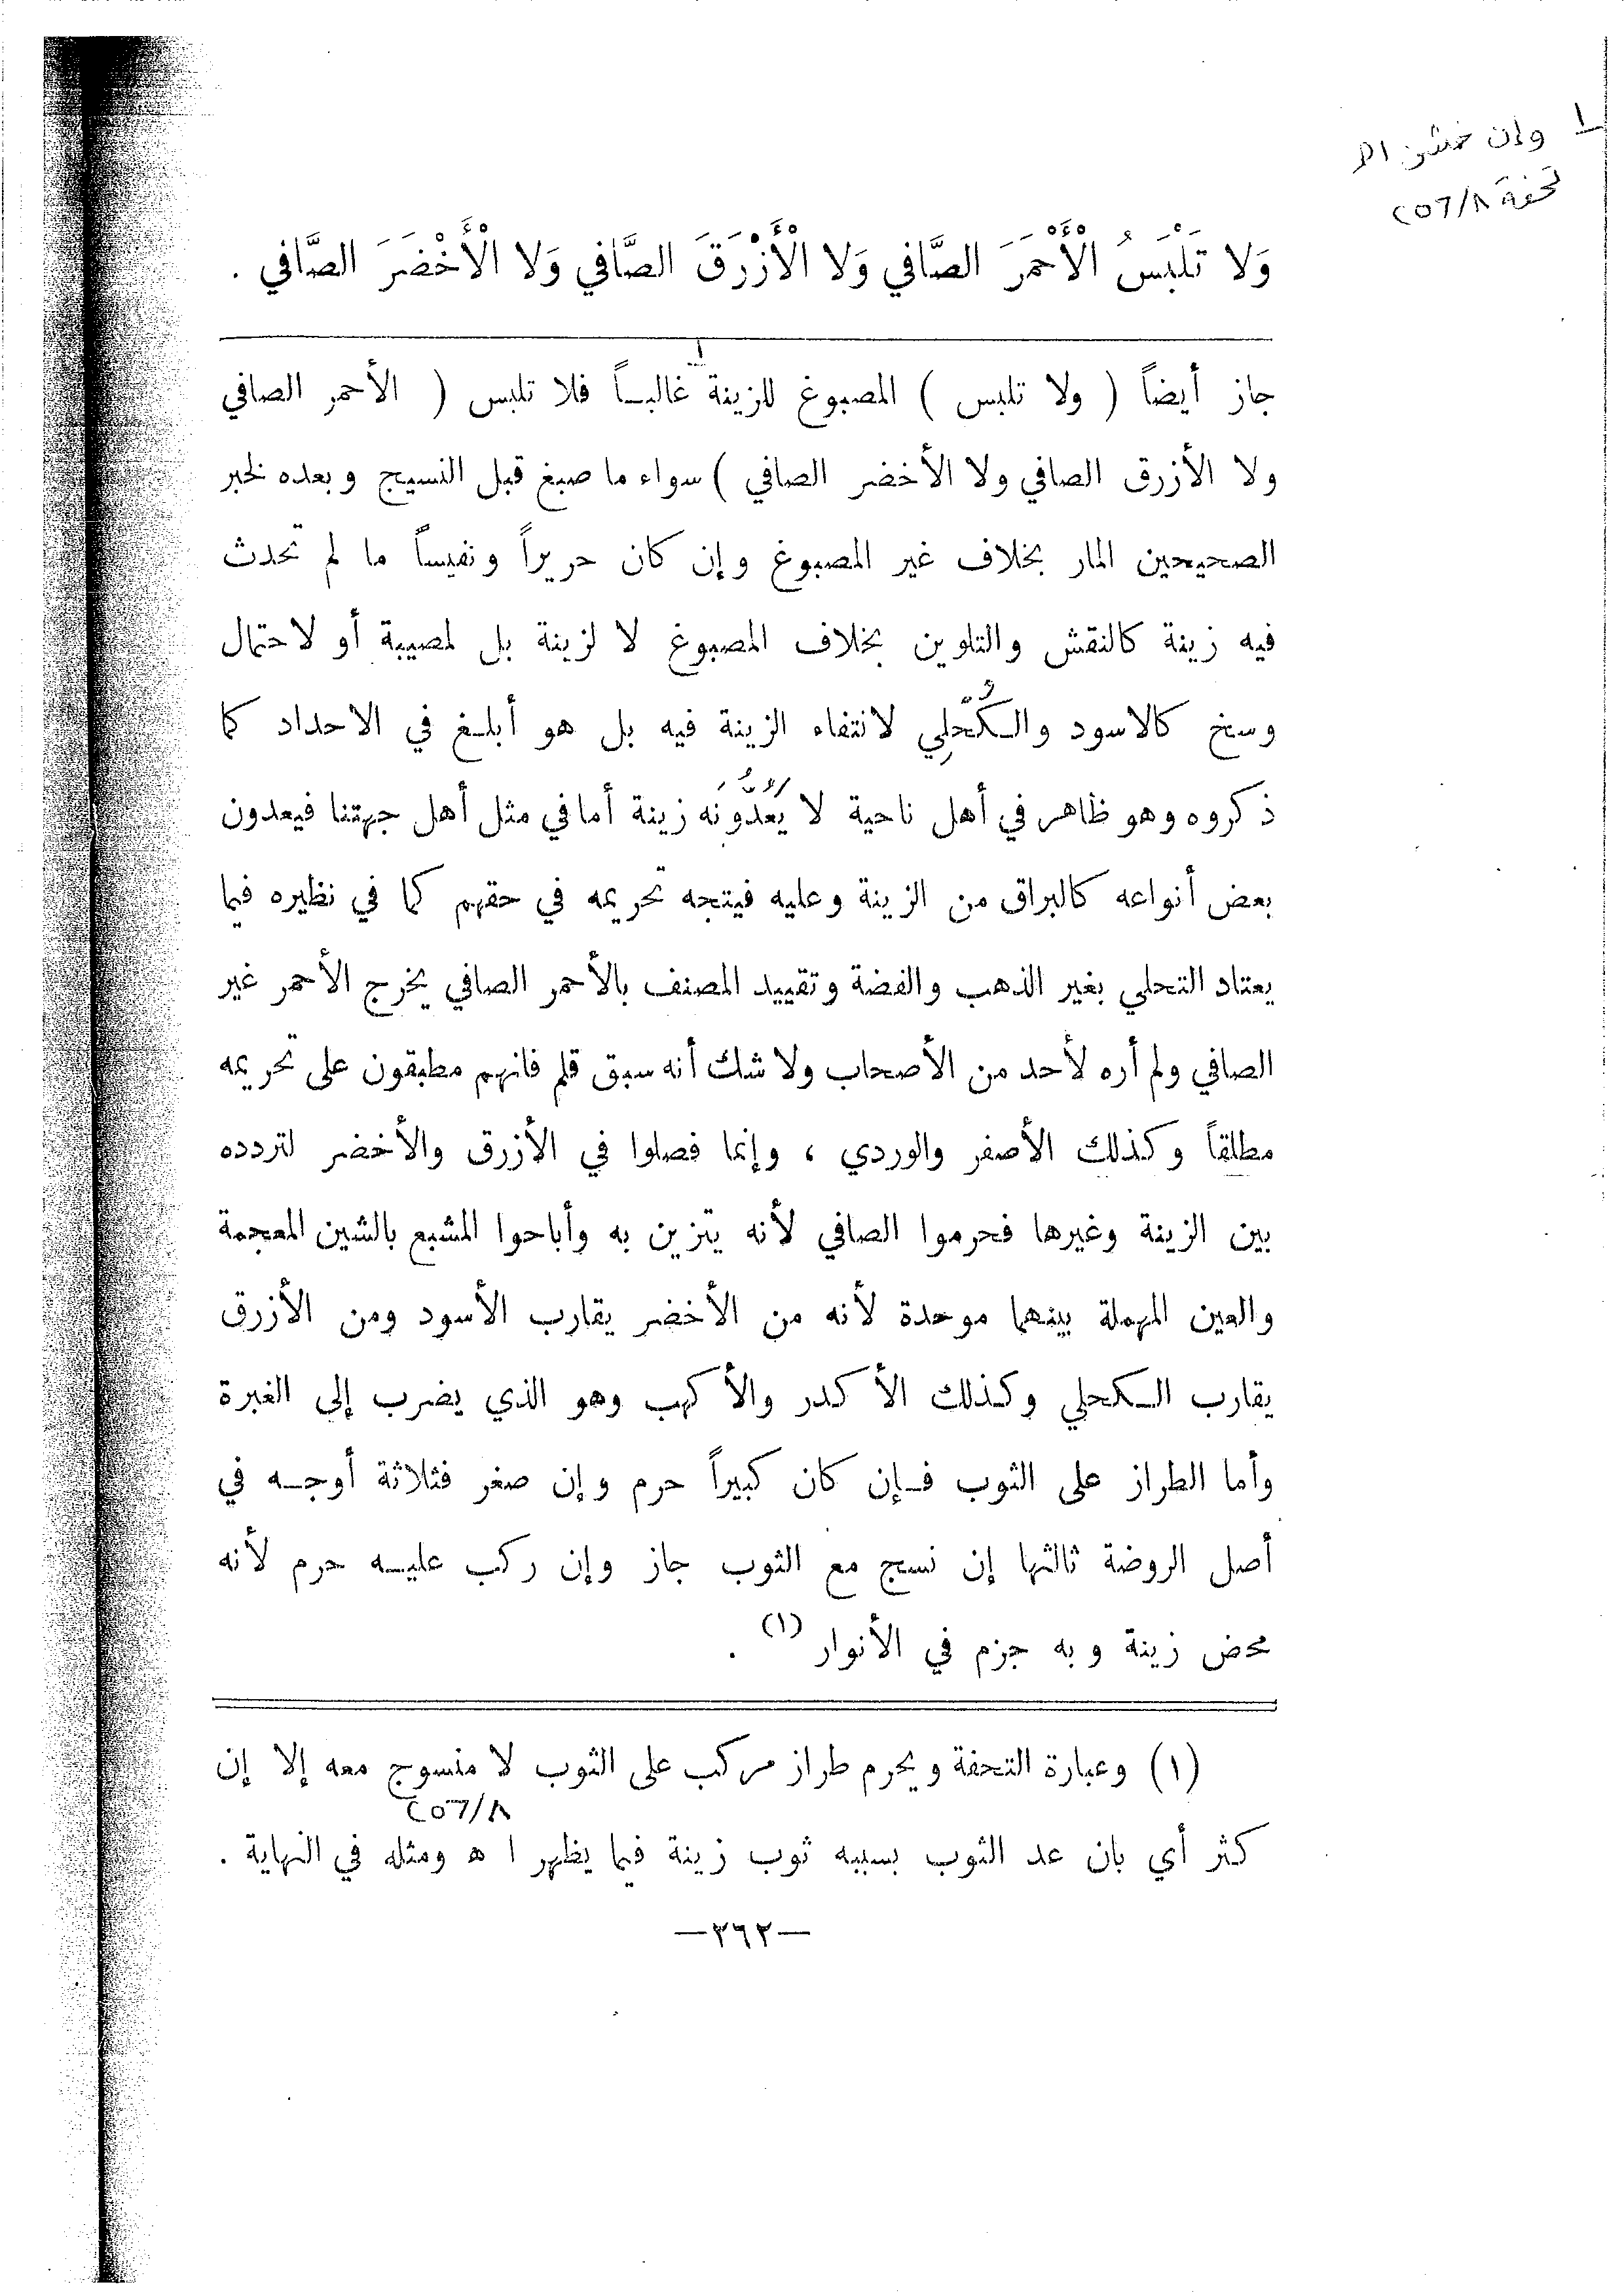 ١ وإن خشن اه
تحفة ٢٥٦/٨
وَلا تَلْبَسُ الْأَحْمَرَ الصَّافي وَلا الْأَزْرَقَ الصَّافي وَلا الْأَخْضَرَ الصَّافي .
جاز أيضاً ( ولا تلبس ) المصبوغ للزينة غالبـاً فلا تلبس ( الأحمر الصافي
ولا الأزرق الصافي ولا الأخضر الصافي ) سواء ما صبغ قبل النسيج وبعده لخبر
الصحيحين المار بخلاف غير المصبوغ وإن كان حريراً ونفيساً ما لم تحدث
فيه زينة كالنقش والتلوين بخلاف المصبوغ لا لزينة بل لمصيبة أو لاحتمال
وسخ كالاسود والكُحْلِي لانتفاء الزينة فيه بل هو أبلغ في الاحداد كما
ذكروه وهو ظاهر في أهل ناحية لا يَعُدّونه زينة أما في مثل أهل جهتنا فيعدون
بعض أنواعه كالبراق من الزينة وعليه فيتجه تحريمه في حقهم كما في نظيره فيما
يعتاد التحلي بغير الذهب والفضة وتقييد المصنف بالأحمر الصافي يخرج الأحمر غير
الصافي ولم أره لأحد من الأصحاب ولا شك أنه سبق قلم فانهم مطبقون على تحريمه
مطلقاً وكذلك الأصفر والوردي ، وإنما فصلوا في الأزرق والأخضر لتردده
بين الزينة وغيرها فحرموا الصافي لأنه يتزين به وأباحوا المشبع بالشين المعجمة
والعين المهملة بينهما موحدة لأنه من الأخضر يقارب الأسود ومن الأزرق
يقارب الكحلي وكذلك الأكدر والأكهب وهو الذي يضرب إلى الغبرة
وأما الطراز على الثوب فـإن كان كبيراً حرم وإن صغر فثلاثة أوجـه في
أصل الروضة ثالثها إن نسج مع الثوب جاز وإن ركب عليـه حرم لأنه
محض زينة وبه جزم في الأنوار (١) .
(١) وعبارة التحفة ويحرم طراز مركب على الثوب لا منسوج معه إلا إن
٢٥٦/٨
كثر أي بان عد الثوب بسببه ثوب زينة فيما يظهر ا ه ومثله في النهاية .
—٣٦٢—